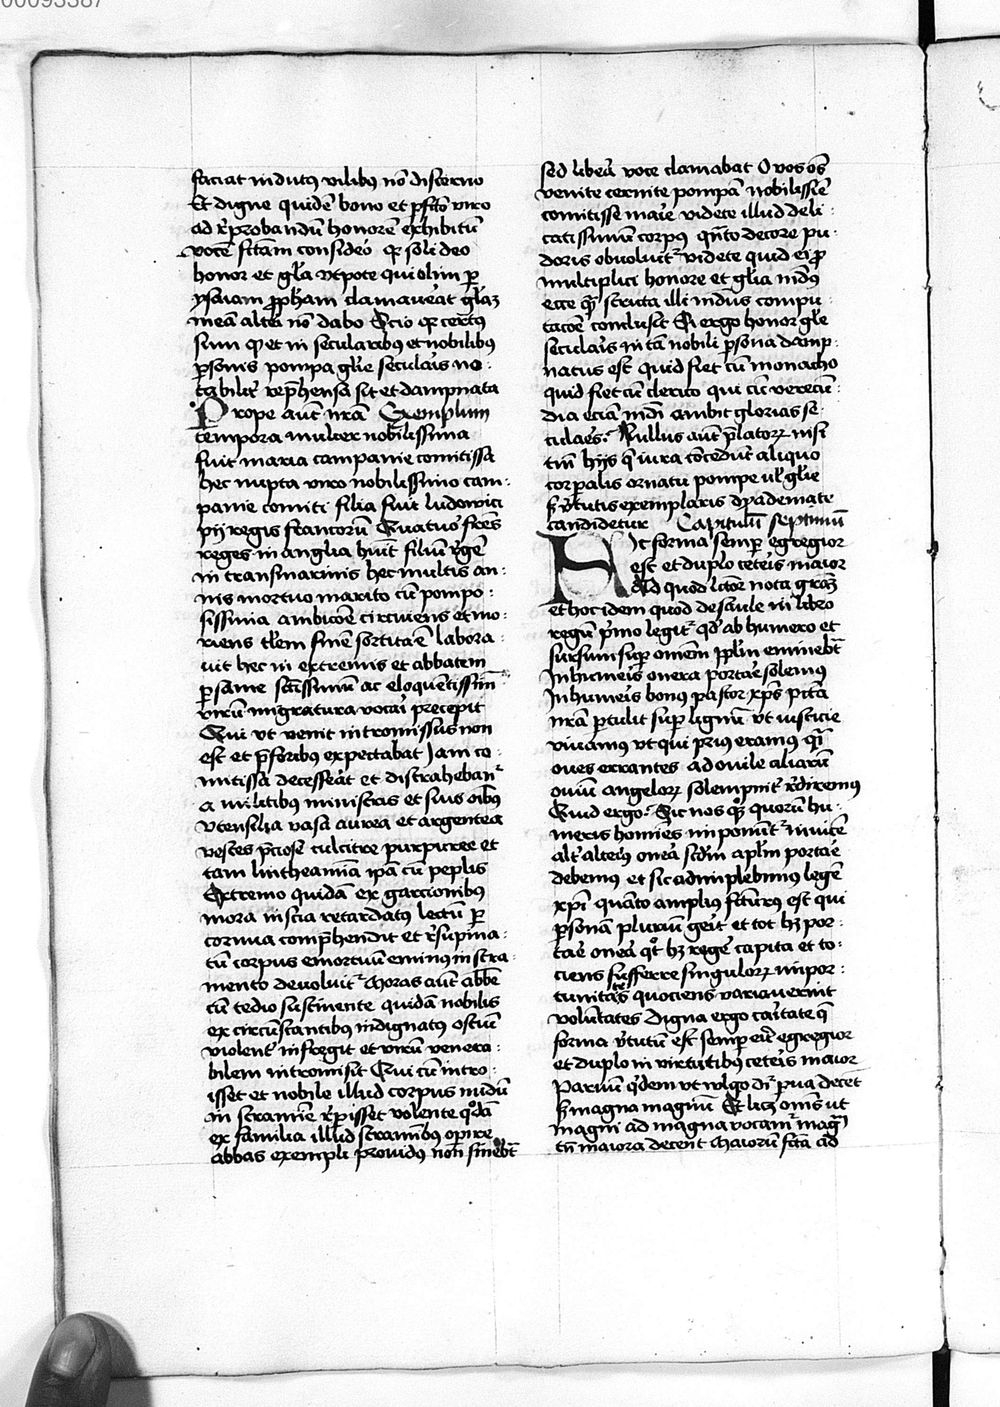 00093387
faciat indutꝰ vilibꝰ nō discerno
Et digne quidē bono et ꝑfc̄o viro
ad r̄probandū honorē exhibitū
vocē sc̄tam consideo ꝙ soli deo
honor et gl̄a vtpote qui olim ꝑ
ysaiam ꝓph̄am clamauerat gl̄aꝫ
meā alt̄i nō dabo Scio ꝙ certꝰ
sum ꝙ et in secularibꝰ et nobilibꝰ
ꝑsonis pompa gl̄ie seculaīs no
tabilit̄ rep̄hensa sit et dampnata
Prope aut̄ nr̄a Exemplum
tempora mulier nobilissima
fuit maria campanie comitissa
hec nupta viro nobilissimo cam
panie comiti filia fuit ludowici
pij regis francorū Quatuor fr̄es
reges in anglia huit filiū r̄gē
in transmarinis hec multis an
nis mortuo marito cū pompo
sissima ambicōe circuiens et mo
riens tl̄em finē sortita ē labora
uit hec in extremis et abbatem
ꝑsane sc̄issimū ac eloquētissim̄
virū migratura vocaī precepit
Qui vt venit intromissus non
est et p̄ foribus expectabat Jam co
mitissa decesserat et distrahebant᷑
a militibus ministris et suis oībꝰ
vtensilia vasa aurea et argentea
vestes p̄ciose culcitre purpuree et
tam lintheamīa ip̄a cū peplis
Extremo quidā ex garcionibꝰ
mora inscia retardatꝰ lectū ꝑ
cornua comp̄hendit et r̄supina
tū corpus emortuū eminꝰ in stra
mento deuoluit᷑ Moras aut̄ abb̄e
cū tedio sustinente quidā nobilis
ex circūstantibꝰ indignatꝰ ostiū
violent̄ infregit et virū venera
bilem intromisit Qui cū intro
isset et nobile illud corpus nudū
in stramīe r̄pisset volente qͦdā
ex familia illud straminibꝰ oꝑire
abbas exempli prouidꝰ non sinebat̄
sed libera voce clamabat O vos oēs
venite cernite pompā nobilissīe
comitisse marie videte illud deli
catissimū corpꝰ qn̄to decore pu
doris obuoluit᷑ videte quid ei ꝓ
multiplici honore et gl̄ia mūdꝰ
ecce qͣ stricta illi mūdus compu
tacōe conclusit Si ergo honor gl̄ie
seculaīs in tā nobili ꝑsona damp
natus est quid fiet cū monacho
quid fiet cū clerico qui cū verecū
dia eciā mūdi ambit glorias se
culaēs Nullus aut̄ p̄latoꝝ nisi
tm̄ hijs q̄ iura concedūt aliquo
corꝑalis ornatu pompe vl̓ gl̄ie
ꝫ v̓tutis exemplaris dyademate
candidetur Capitulū septimū
Hic forma semꝑ egregior
est et duplo ceteīs maior
Ad quod licōe nota graꝫ
et hoc idem quod de saule in libro
regū p̓mo legit᷑ qđ ab humero et
sursum suꝑ omēm ppl̄m eminebat̄
In humeīs onera portare solemꝰ
In humeīs bonꝰ pastor xp̄s pctā
nr̄a ꝑtulit suꝑ lignū vt iusticie
viuamꝰ vt qui prius eramꝰ qͣi
oues errantes ad ouile aliarū
ouiū angeloꝝ solempnit̓ r̄diremꝰ
Quid ergo Sic nos qͦꝫ quorū hu
meris homīes imponūt᷑ inuicē
alt̓ alteriꝰ onera scd̄m apl̄m portare
debemꝰ et sic adimplebimꝰ legē
xp̄i quāto ampliꝰ sc̄turꝰ est qui
ꝑsonam pluriū gerit et tot hꝫ por
tare onera qͦt hꝫ rege capita et to
ciens sufferre singuloꝝ impor
tunitates quociens variauerint
volūtates Digna ergo caritate q̄
forma v̓tutū est semꝑ eīt egregior
et duplo in virtutibꝰ ceteīs maior
Paruū qͥdem vt wlgo dr̄ ꝑua decēt
ꝫ magna magnū Et licꝫ om̄s vt
magni ad magna vocam̄ magꝭ
tn̄ maiora decent Maiorū sc̄tā ad